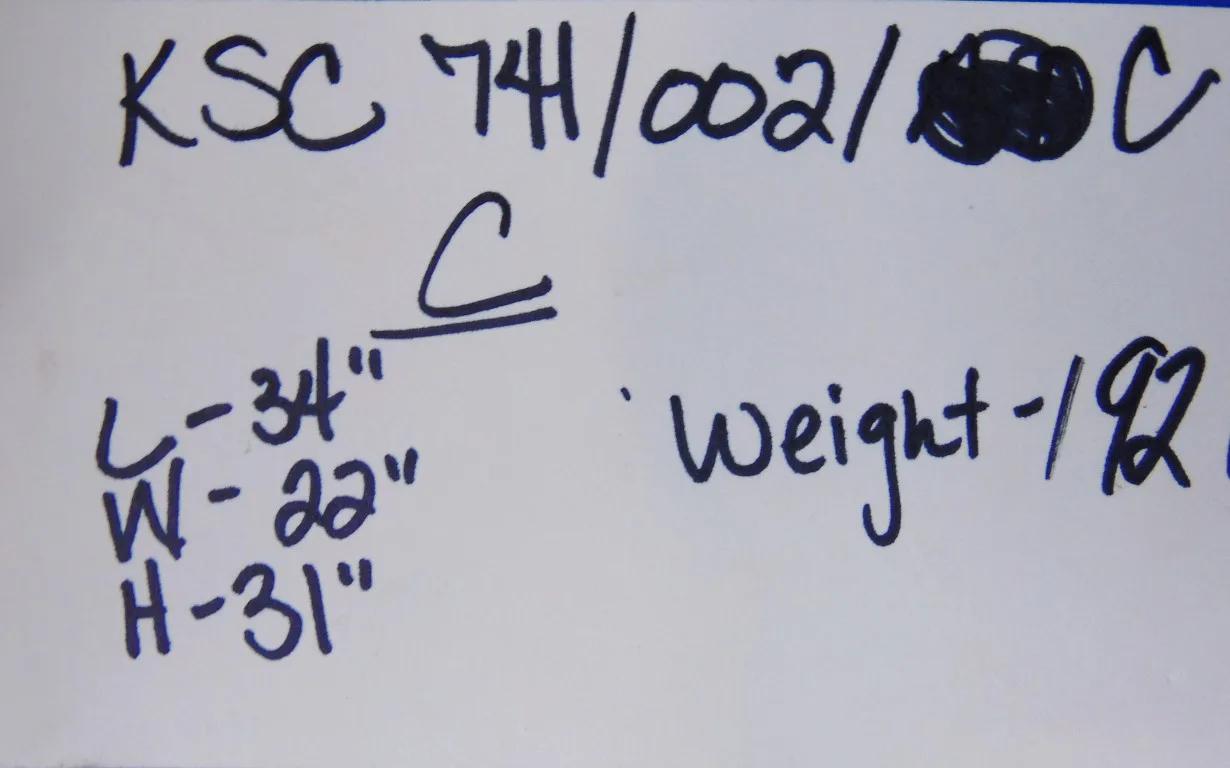 KSC 741/002/ C
C
L-34"
W-22"
H-31"
Weight-192